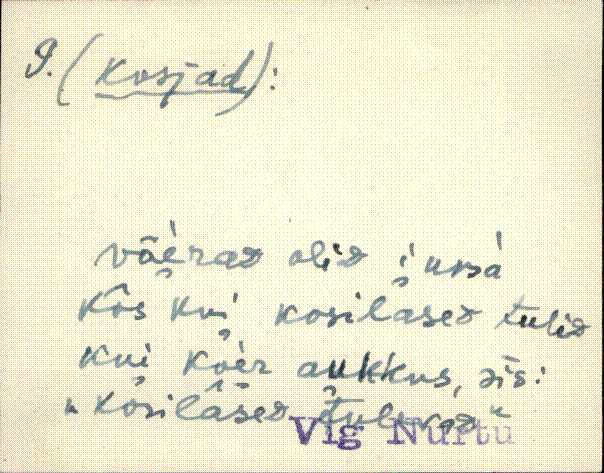 I. (kosjad):
võerad olid jurs̀a
kos kui kosilased tulid
kui koer aukkus, sis:
"kosilased tulevad"
Vig Nurtu